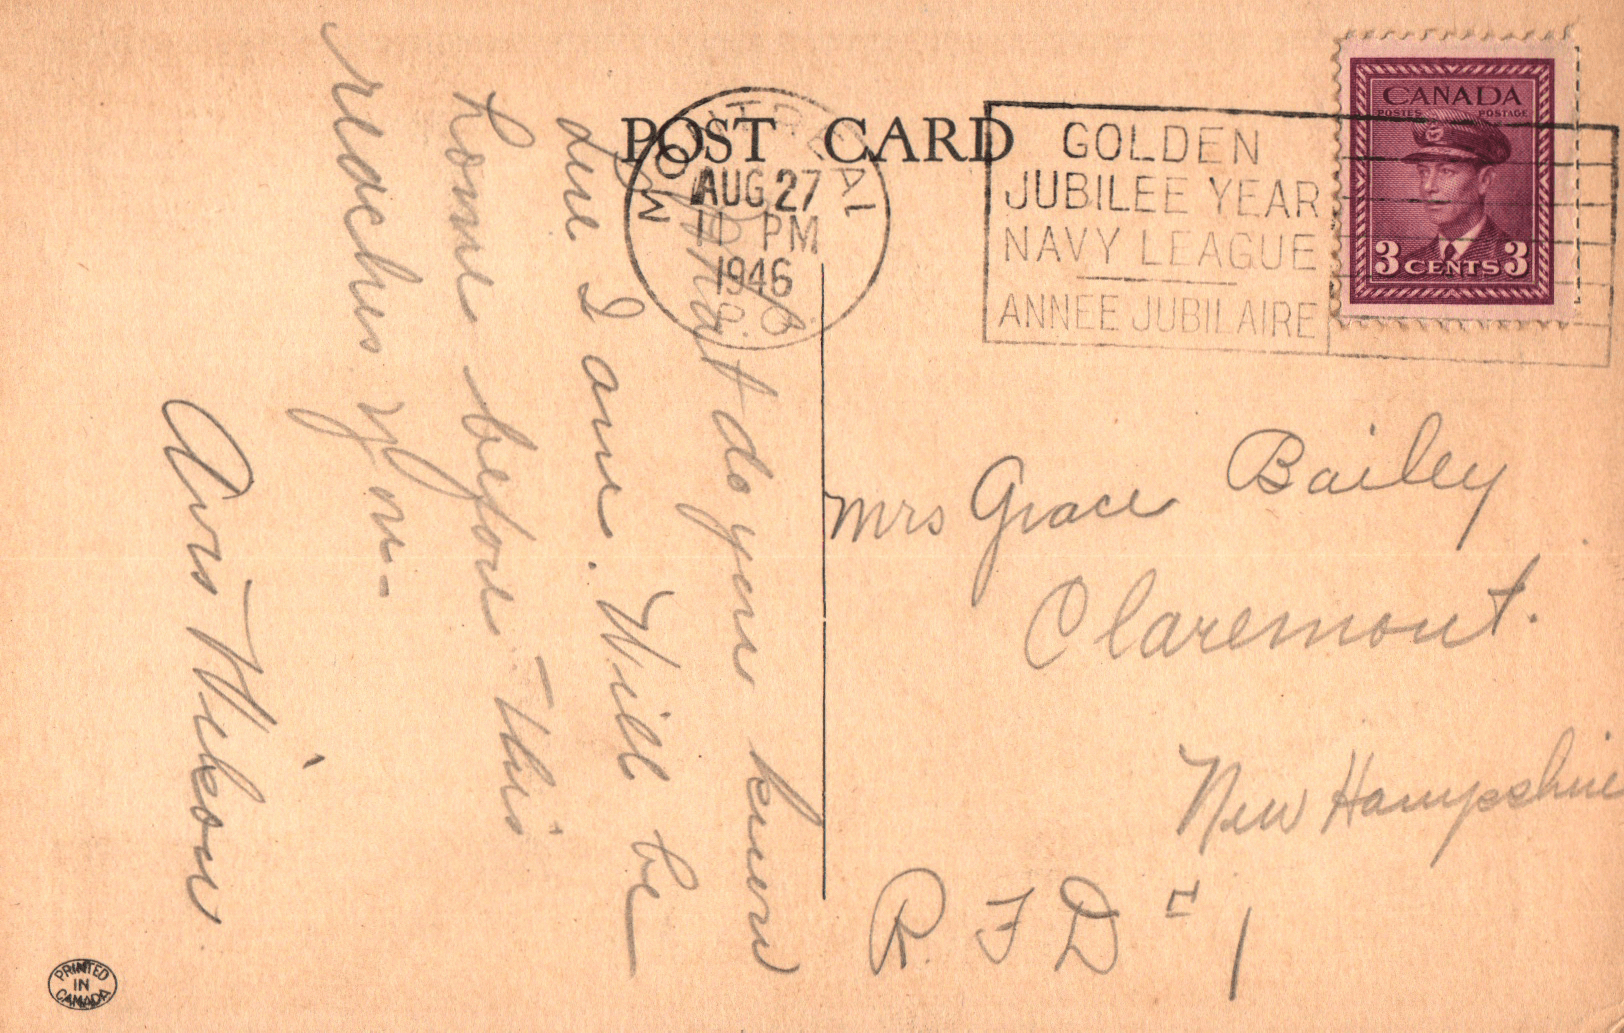 POST CARD
MONTREAL
AUG 27
11 PM
1946
GOLDEN
JUBILEE YEAR
NAVY LEAGUE
ANNEE JUBILAIRE
CANADA
POSTES POSTAGE
3 CENTS 3
What do you know
I am. Will be
home before this
reaches you-
Wilson
Mrs Grace Bailey
Claremont.
New Hampshire
R. F D # 1
PRINTED
IN
CANADA